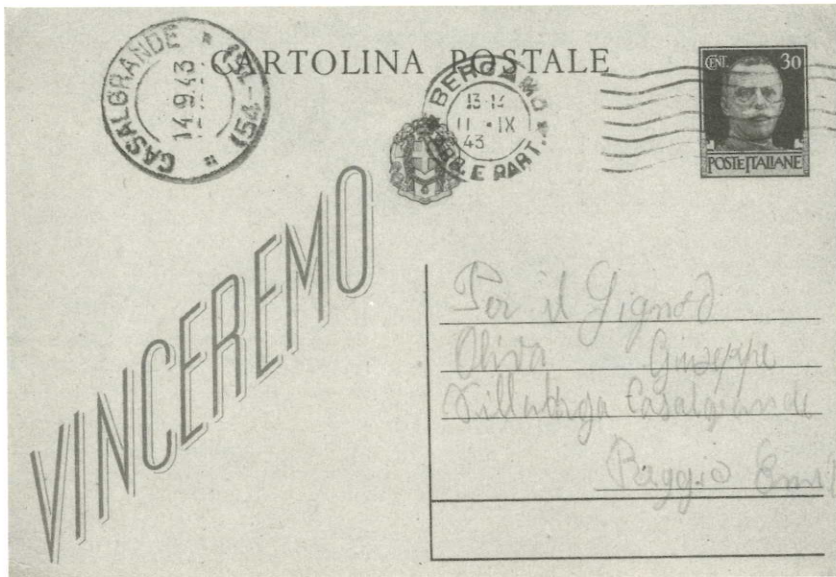 CARTOLINA POSTALE
CASALGRANDE * (54-154) *
14.9.43
BERGAMO
13-14
11 · IX
43
E PART.
CENT. 30
POSTE ITALIANE
VINCEREMO
Per il Signor
Oliva Giuseppe
Casalgrande
Reggio